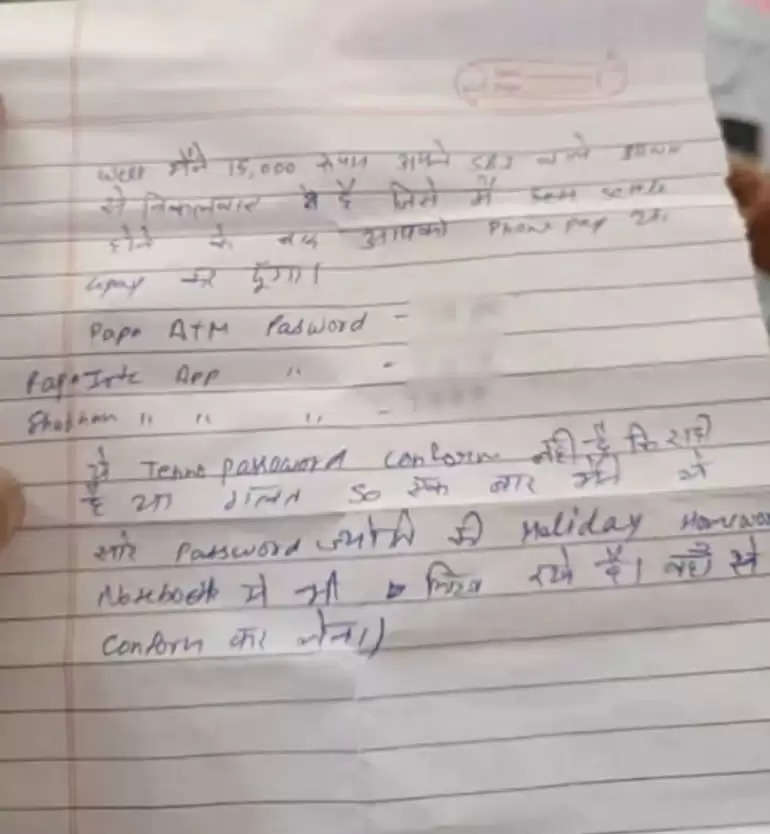 well मैंने 15,000 रुपए आपने SBI वाले
से निकलवाए है जिसे में
होने के बाद आपको Phone pay या
Gpay कर दूँगा।
Papa ATM Pasword -
Papa App " -
Shobhan " " " -
ये Tenno password conform नहीं है कि सही
है या गलत so एक बार मेरी ये
सारे Password ज्योति की Holiday Homewor
Notebook मे भी लिख रखे है। वहाँ से
Conform कर लेना।)